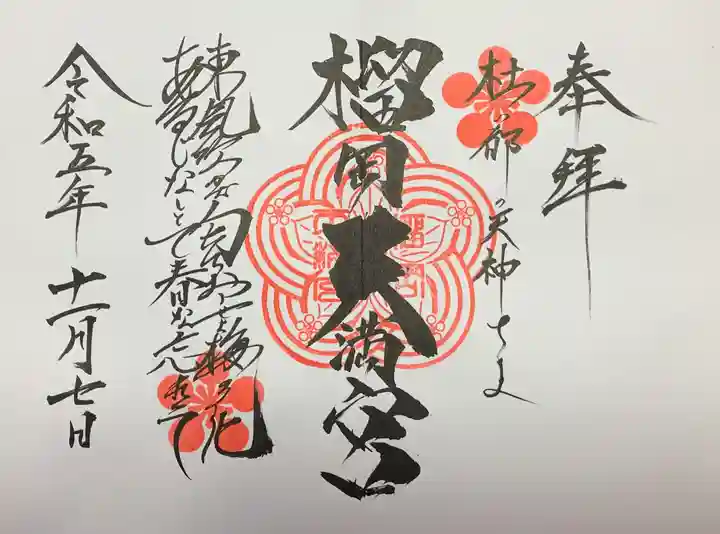 奉拝
杜の都の天神さま
榴岡天満宮
東風吹かば匂ひおこせよ梅の花
あるじなしとて春な忘れそ
令和五年 十一月七日